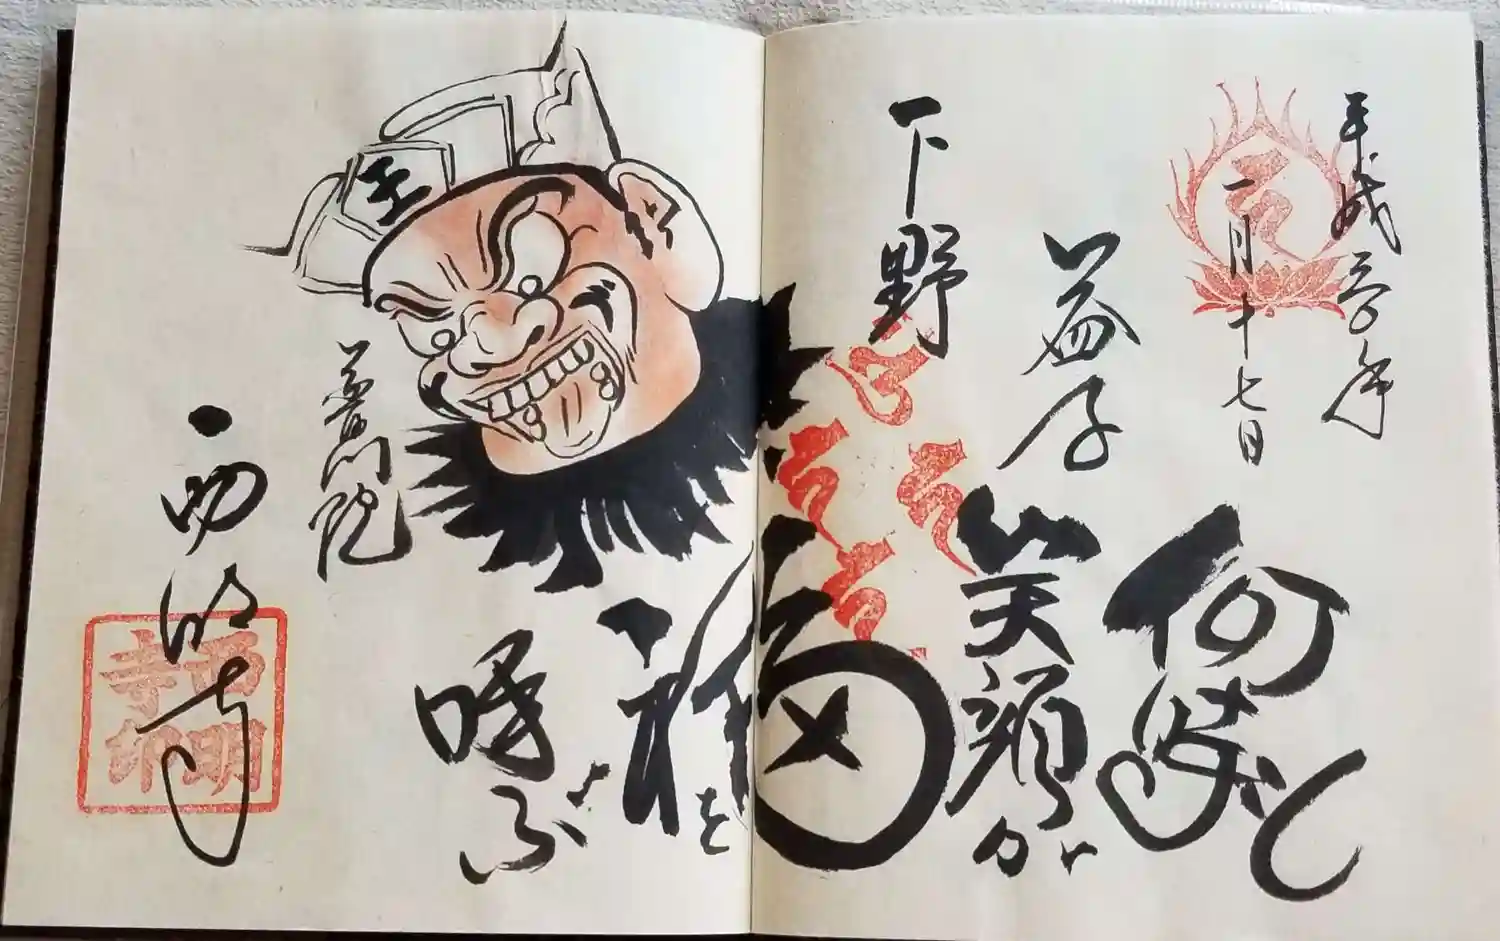 平成三十年
一月十七日
何時も
益子
笑顔が
下野
福を
呼ぶ
王
普門院
西明寺
西明寺印